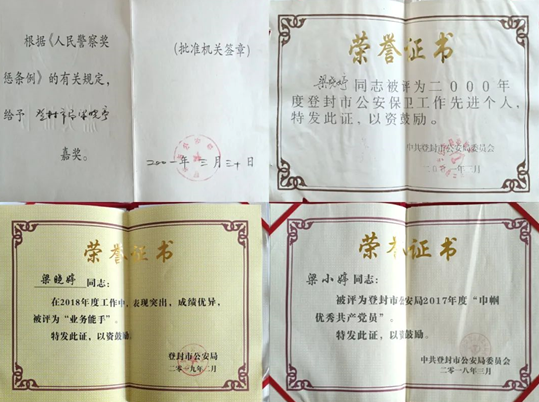 根据《人民警察奖
惩条例》的有关规定，
给予
嘉奖。
(批准机关签章)
二00一年三月三十日
荣誉证书
梁晓婷同志被评为二000年
度登封市公安保卫工作先进个人，
特发此证，以资鼓励。
中共登封市公安局委员会
二00一年三月
荣誉证书
梁晓婷同志：
在2018年度工作中，表现突出，成绩优异，
被评为“业务能手”。
特发此证，以资鼓励。
登封市公安局
二〇一九年二月
荣誉证书
梁小婷同志：
被评为登封市公安局2017年度“巾帼
优秀共产党员”。
特发此证，以资鼓励。
中共登封市公安局委员会
二〇一八年三月